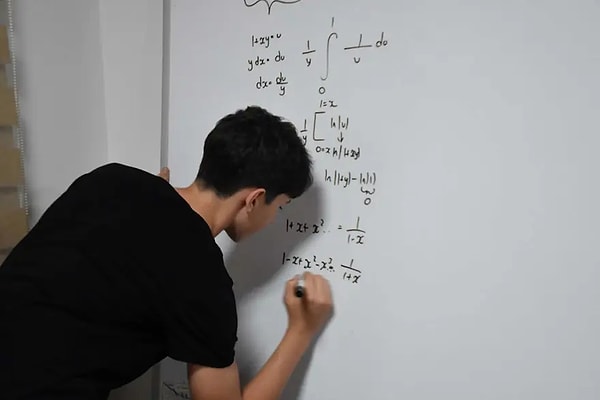 1+xy=u
ydx=du
dx=du/y
1/y ∫ 1/u du
1
0
1=x
1/y [ ln|u|
0=x ln|1+xy|
ln|1+y|-ln|1|
0
1+x+x².. = 1/1-x
1-x+x²-x³.. 1/1+x